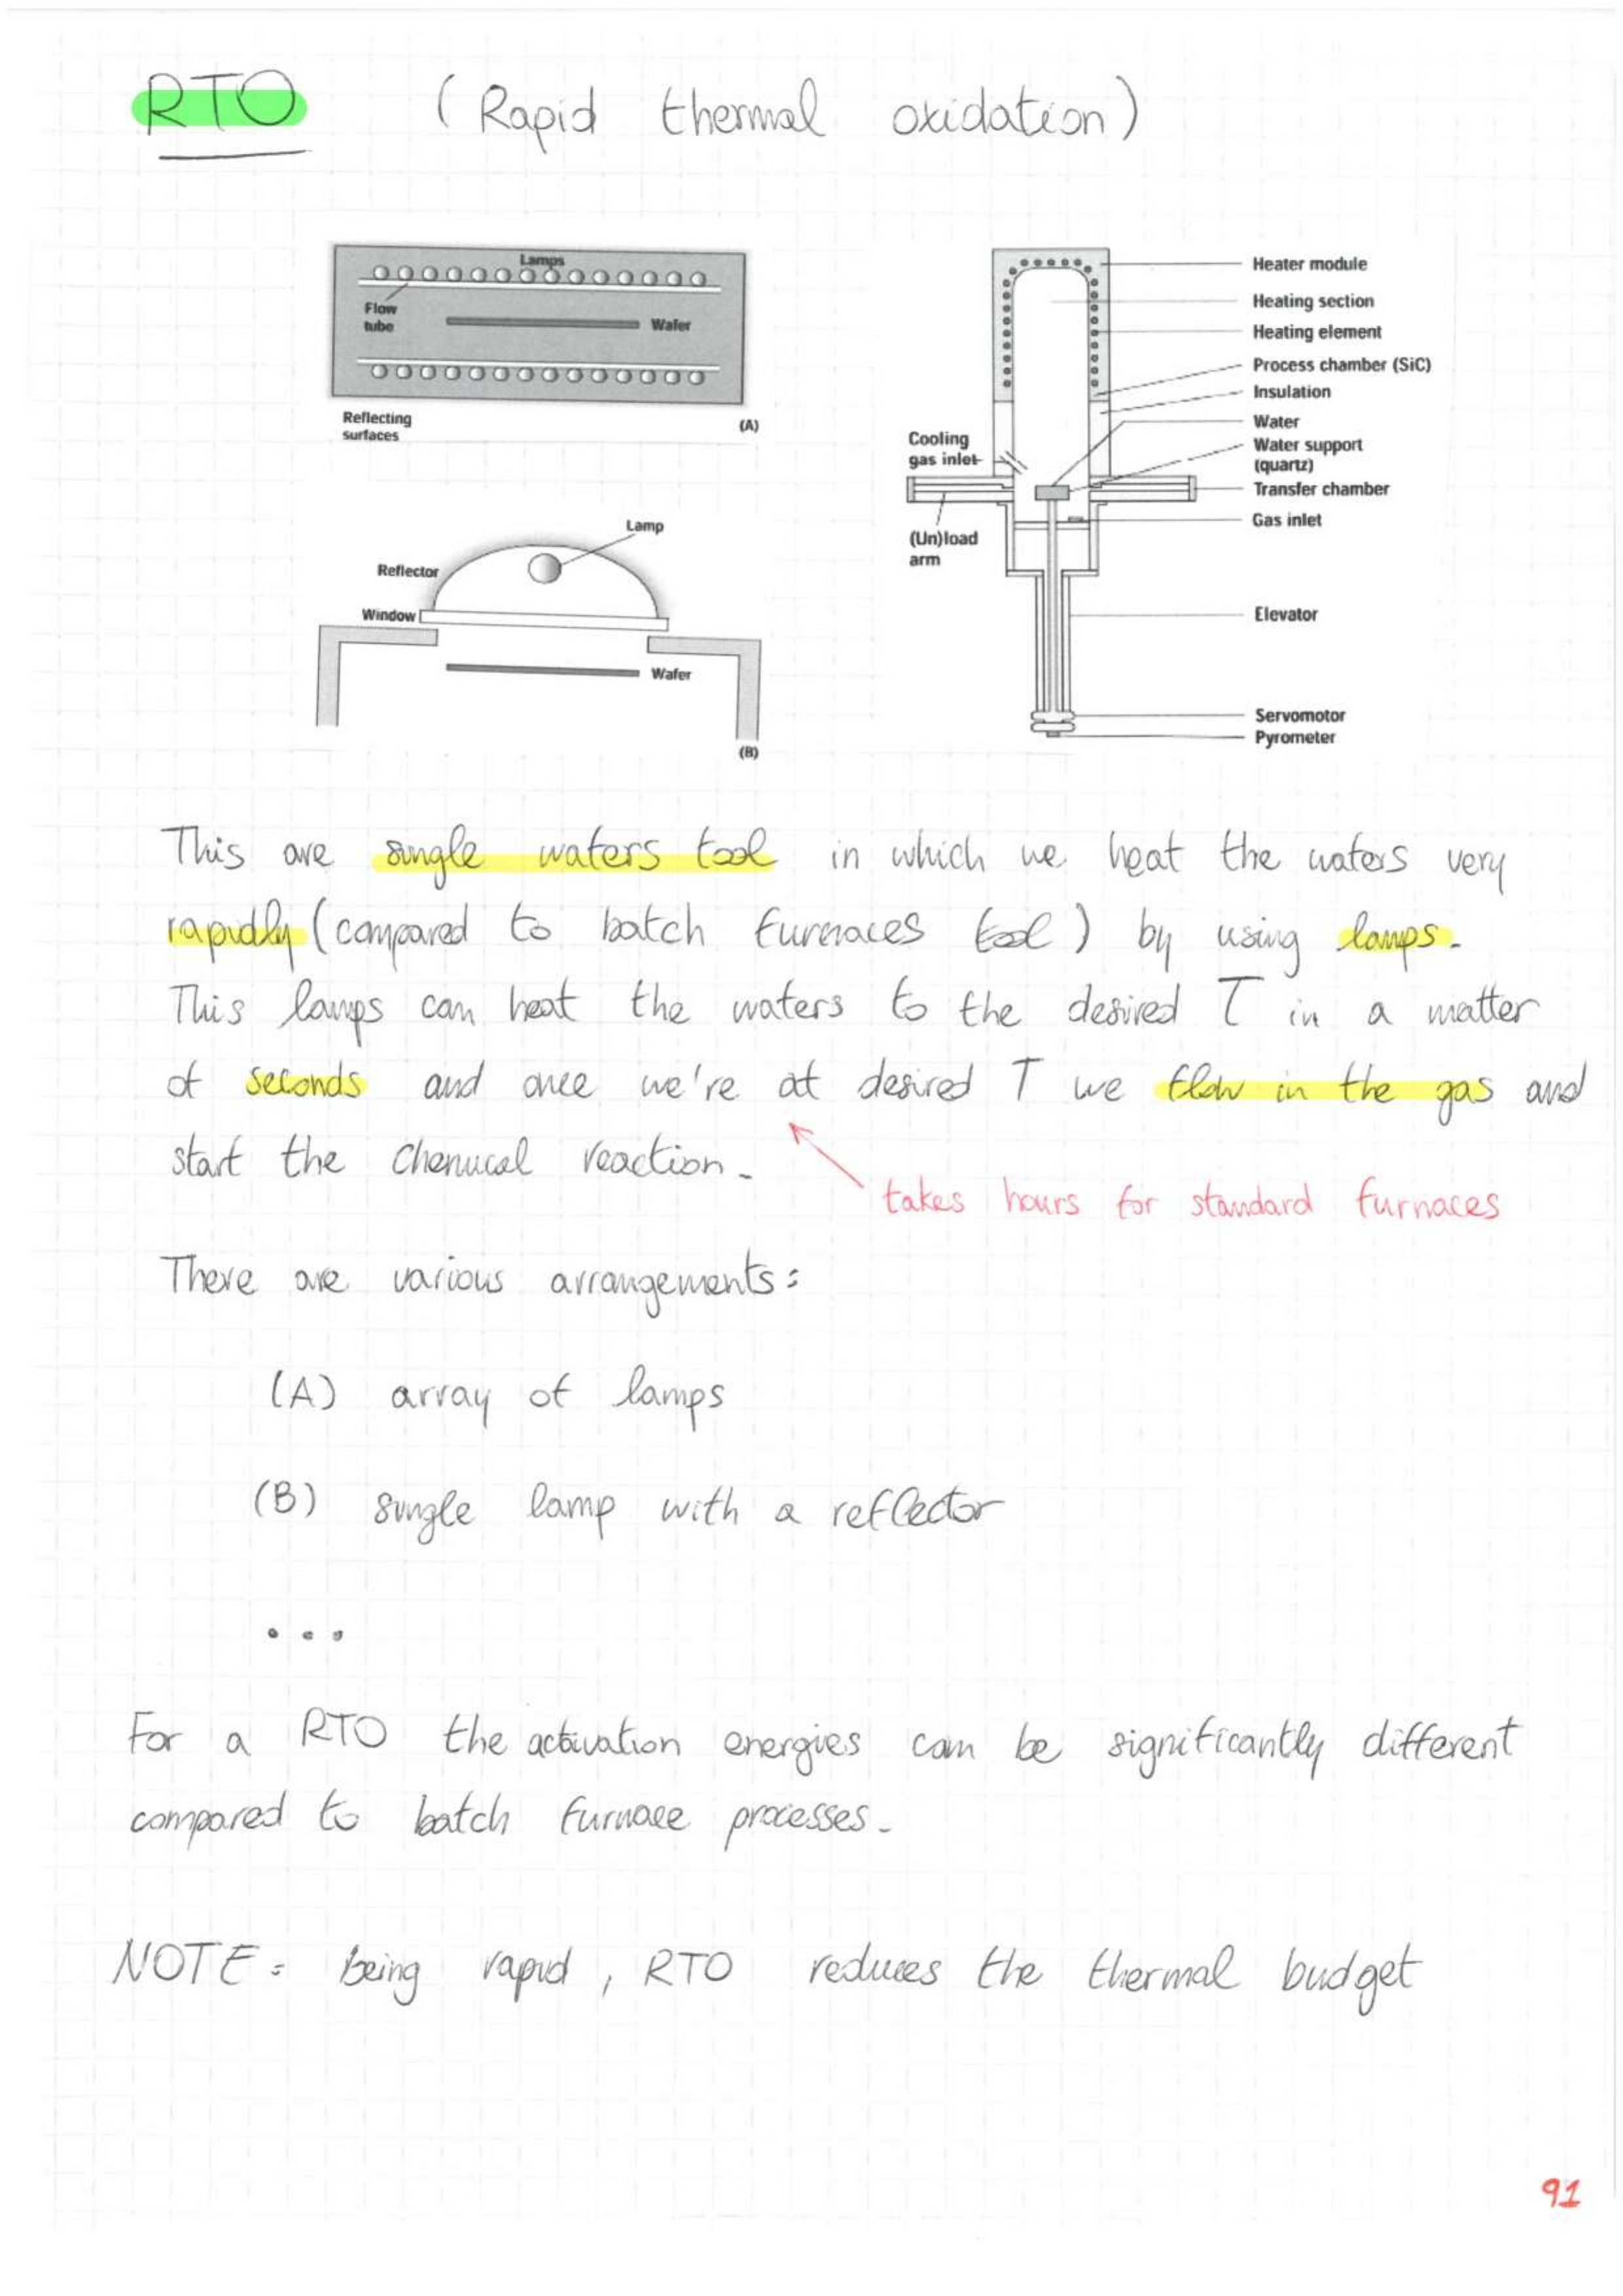 RTO (Rapid thermal oxidation)
Lamps
Flow
tube
Wafer
Reflecting
surfaces
(A)
Lamp
Reflector
Window
Wafer
(B)
Heater module
Heating section
Heating element
Process chamber (SiC)
Insulation
Water
Water support
(quartz)
Transfer chamber
Gas inlet
Cooling
gas inlet
(Un)load
arm
Elevator
Servomotor
Pyrometer
This are single wafers tool in which we heat the wafers very
rapidly (compared to batch furnaces tool) by using lamps.
This lamps can heat the wafers to the desired T in a matter
of seconds and once we're at desired T we flow in the gas and
start the chemical reaction.
takes hours for standard furnaces
There are various arrangements:
(A) array of lamps
(B) single lamp with a reflector
...
For a RTO the activation energies can be significantly different
compared to batch furnace processes.
NOTE: being rapid, RTO reduces the thermal budget
91